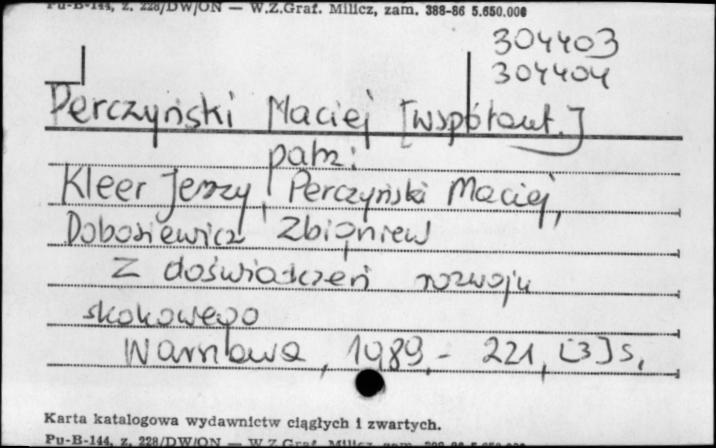 Pu-B-144, z. 228/DW/ON — W.Z.Graf. Milicz, zam. 388-86 5.650.000
304403
304404
Perczyński Maciej [współaut.]
patrz:
Kleer Jerzy, Perczyński Maciej,
Dobosiewicz Zbigniew
Z doświadczeń rozwoju
skokowego
Warszawa, 1989.- 221, [3] s.
Karta katalogowa wydawnictw ciągłych i zwartych.
Pu-B-144, z. 228/DW/ON — W.Z.Graf. Milicz, zam.